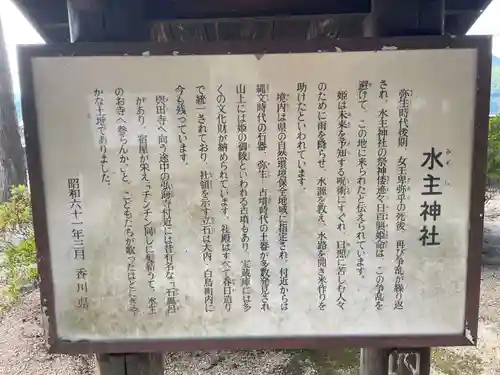 水主神社
みずし
弥生時代後期 女王卑弥呼の死後、再び争乱が繰り返
され、水主神社の祭神倭迹々日百襲姫命は、この争乱を
避けて、この地に来られたと伝えられています。
姫は未来を予知する呪術にすぐれ、日照に苦しむ人々
のために雨を降らせ、水源を教え、水路を開き米作りを
助けたといわれています。
境内は県の自然環境保全地域に指定され、付近からは
縄文時代の石器 弥生 古墳時代の土器が多数発見され
山上には姫の御陵といわれる古墳もあり、宝蔵庫には多
くの文化財が納められています。社殿はすべて春日造り
で統一されており、社領を示す立石は大内、白鳥町内に
今も残っています。
與田寺へ向う途中の弘海寺付近には有名な「石風呂」
があり、宿屋が栄え「チンチンく同しに髪結うて、水主
のお寺へ参らんか」と、こどもたちが歌ったほどにぎや
かな土地でありました。
昭和六十一年三月 香川県